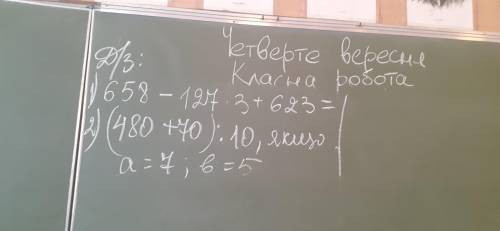 Четверте вересня
Класна робота
Д/З:
1) 658 - 127 · 3 + 623 =
2) (480 + 70) : 10, якщо
a = 7 ; в = 5